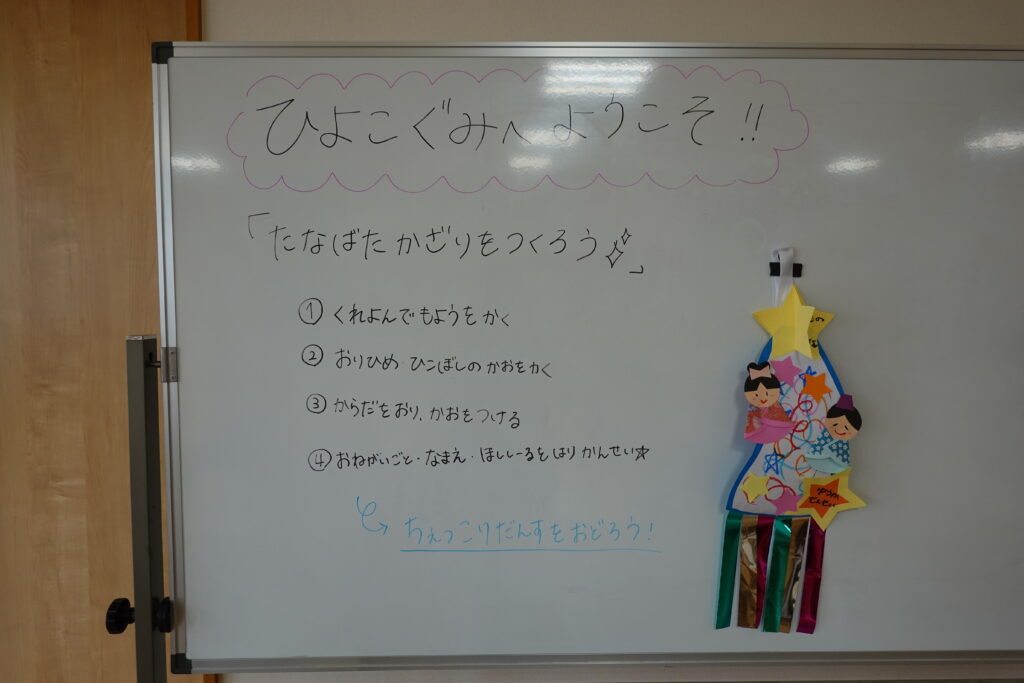 ひよこぐみへようこそ!!
「たなばたかざりをつくろう」
① くれよんでもようをかく
② おりひめ・ひこぼしのかおをかく
③ からだをおり、かおをつける
④ おねがいごと・なまえ・ほししーるをはりかんせい☆
ちぇっこりだんすをおどろう!
せんせい